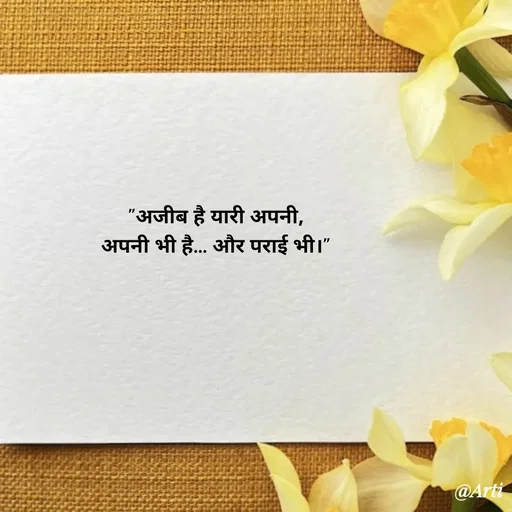 "अजीब है यारी अपनी,
अपनी भी है... और पराई भी।"
@Arti